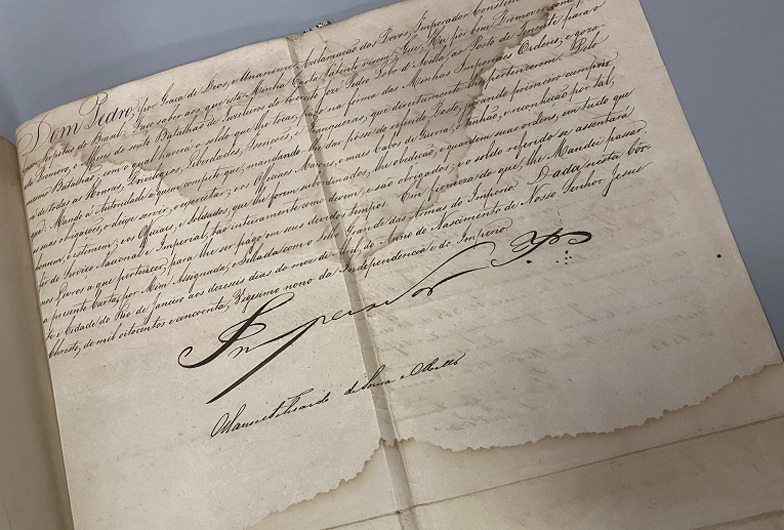 Dom Pedro, por Graça de Deos, e Unanime Acclamação dos Povos, Imperador Constitu
petuo do Brasil: Faço saber aos que esta Minha Carta Patente virem, que Hei por bem Promover com
Alferes do sexto Batalhão de Fuzileiros do Exercito José Pedro Lobo d'Avilla, ao Posto de Tenente para o
mesmo Batalhão, com o qual haverá o soldo que lhe tocar, pago na forma das Minhas Imperiaes Ordens, e goza-
rá de todas as Honras, Privilegios, Liberdades, Isenções, e Franquezas, que direitamente lhe pertencerem. Pelo
que Mando á Autoridade a quem competir, que mandando-lhe dar posse do referido Posto, jurando primeiro cumprir
as suas obrigações, o deixe servir, e exercitar; e os Officiaes Maiores, e mais Cabos de Guerra, o tenhão, e reconheção por tal,
honrem, e estimem; e os Officiaes, e Soldados, que lhe forem subordinados, lhe obedeção, e guardem suas ordens, em tudo que
for do Serviço Nacional e Imperial, tão inteiramente como devem, e são obrigados; e o soldo referido se assentará
nos Livros a que pertencer, para lhe ser pago em seus devidos tempos. Em firmeza do que, lhe Mandei passar
a presente Carta, por Mim Assignada, e Sellada com o Sello Grande das Armas do Imperio. Dada nesta Côr-
te e Cidade do Rio de Janeiro aos dezeseis dias do mez de Abril, do Anno do Nascimento de Nosso Senhor Jesus
Christo, de mil oitocentos e cincoenta, Vigesimo nono da Independencia e do Imperio.
Imperador
Manoel Felizardo de Souza e Mello